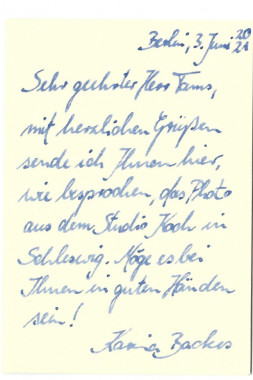 Berlin, 3. Juni 2021
Sehr geehrter Herr Tams,
mit herzlichen Grüßen
sende ich Ihnen hier,
wie besprochen, das Photo
aus dem Studio Koch in
Schleswig. Möge es bei
Ihnen in guten Händen
sein!
Karin Backes